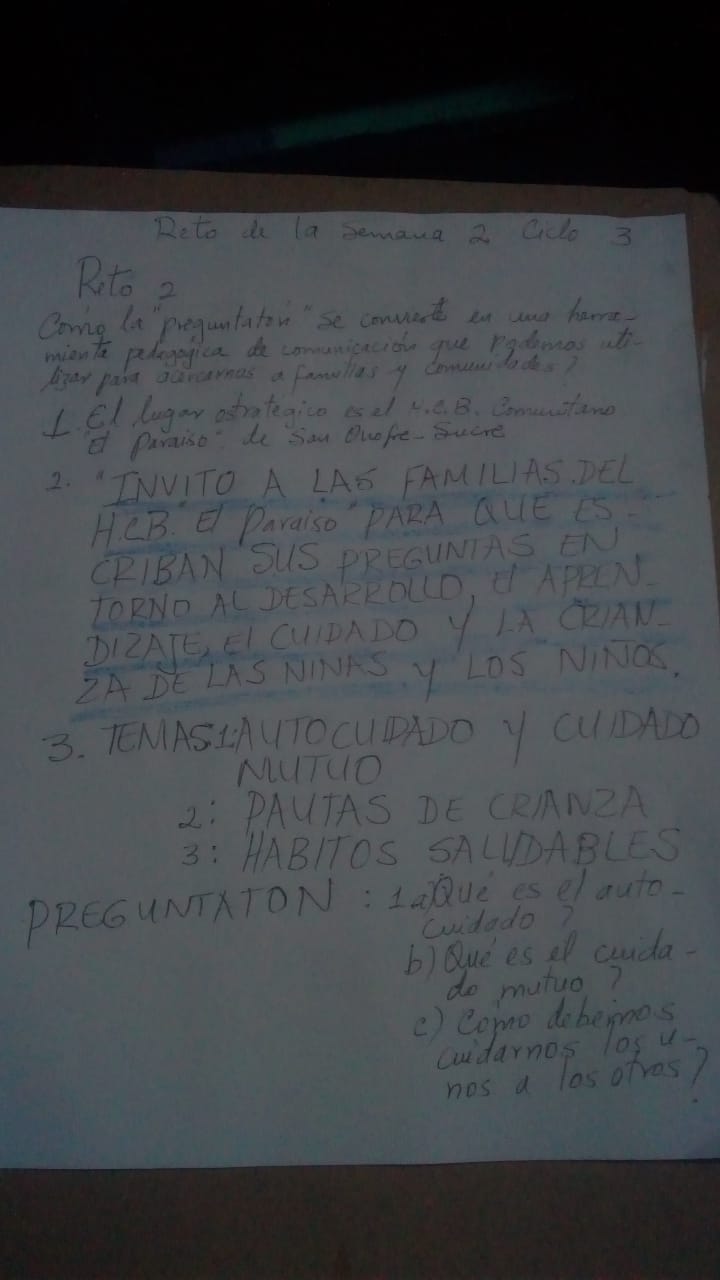 Reto de la Semana 2 Ciclo 3
Reto 2
Como la "preguntatón" se convierte en una herra-
mienta pedagógica de comunicación que podemos uti-
lizar para acercarnos a familias y comunidades?
1. El lugar estratégico es el H.C.B. Comunitario
"El Paraiso" de San Onofre - Sucre
2. "INVITO A LAS FAMILIAS DEL
H.C.B. "El Paraiso" PARA QUE ES-
CRIBAN SUS PREGUNTAS EN
TORNO AL DESARROLLO, El APREN-
DIZAJE, El CUIDADO Y LA CRIAN-
ZA DE LAS NIÑAS Y LOS NIÑOS.
3. TEMAS:1:AUTOCUIDADO Y CUIDADO
MUTUO
2: PAUTAS DE CRIANZA
3: HABITOS SALUDABLES
PREGUNTATON : 1a)Qué es el auto-
cuidado ?
b) Qué es el cuida-
do mutuo ?
c) Cómo debemos
cuidarnos los u-
nos a los otros ?